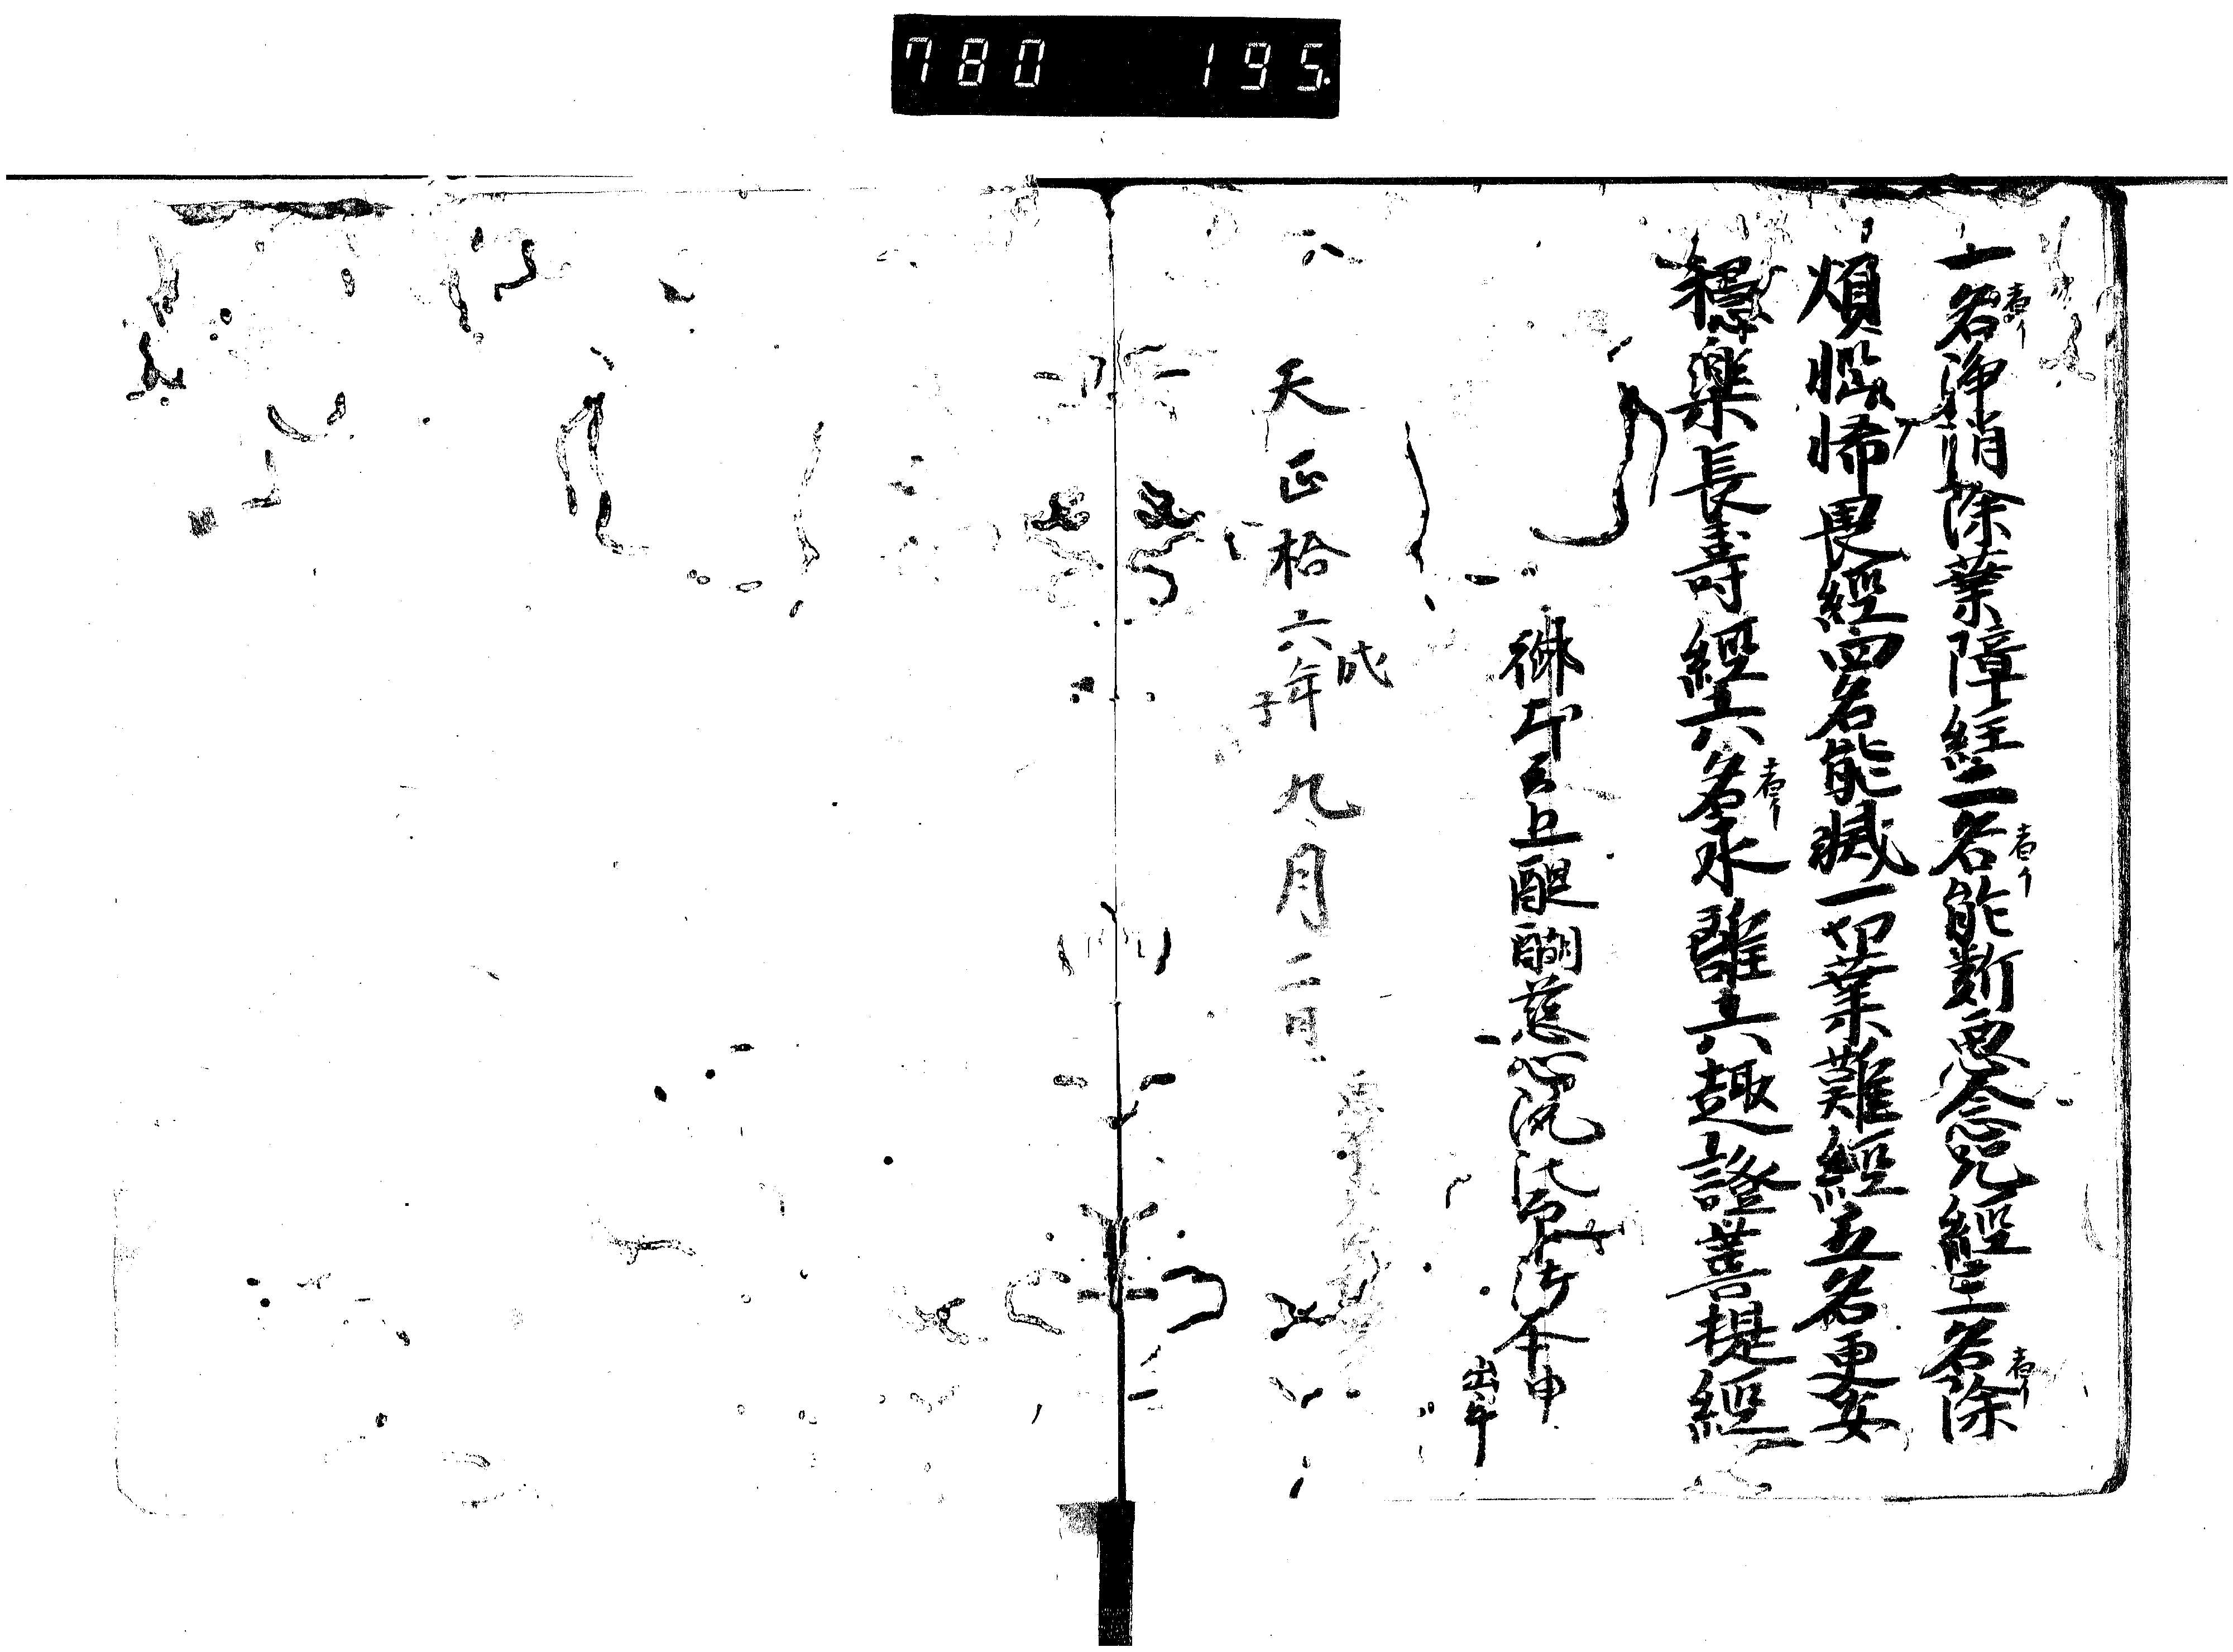 780 195
一名淨消除業障経二名能断悪念咒經三名除
煩惱怖畏經四名能滅一切業難經五名更安
穩樂長壽經六名永離六趣證菩提經
御本云上醍醐慈心院法印御本申
出畢
天正拾六年戊子九月二日